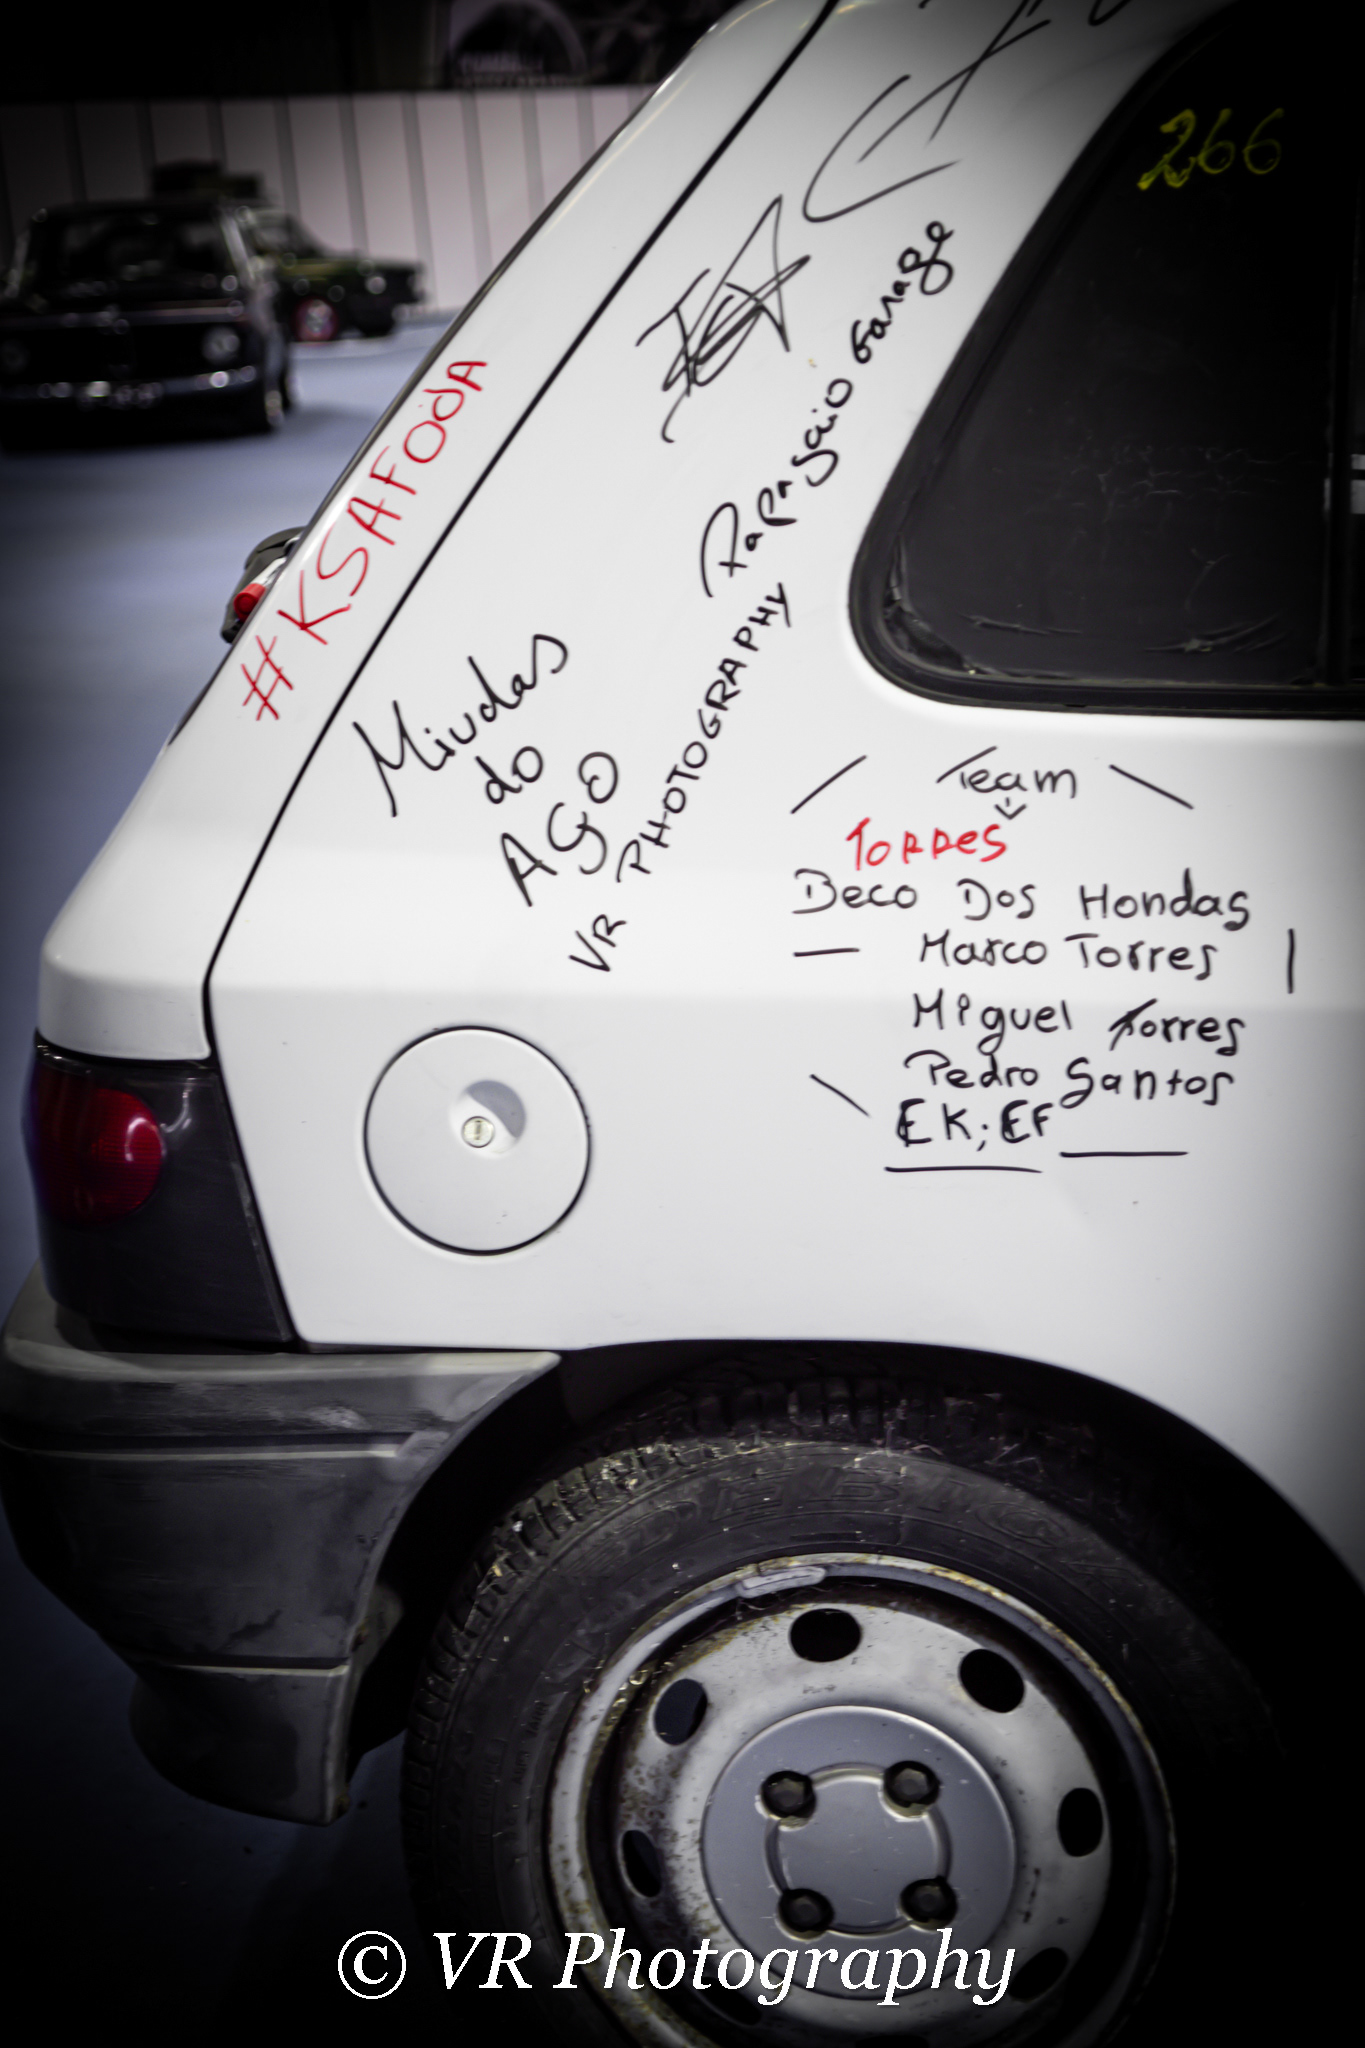 266
#KSAFODA
Papagaio Garage
Miudas
do
AGO
VR PHOTOGRAPHY
Team
Torres
Beco Dos Hondas
Marco Torres
Miguel Torres
Pedro Santos
EK; EF
DEBICA
© VR Photography